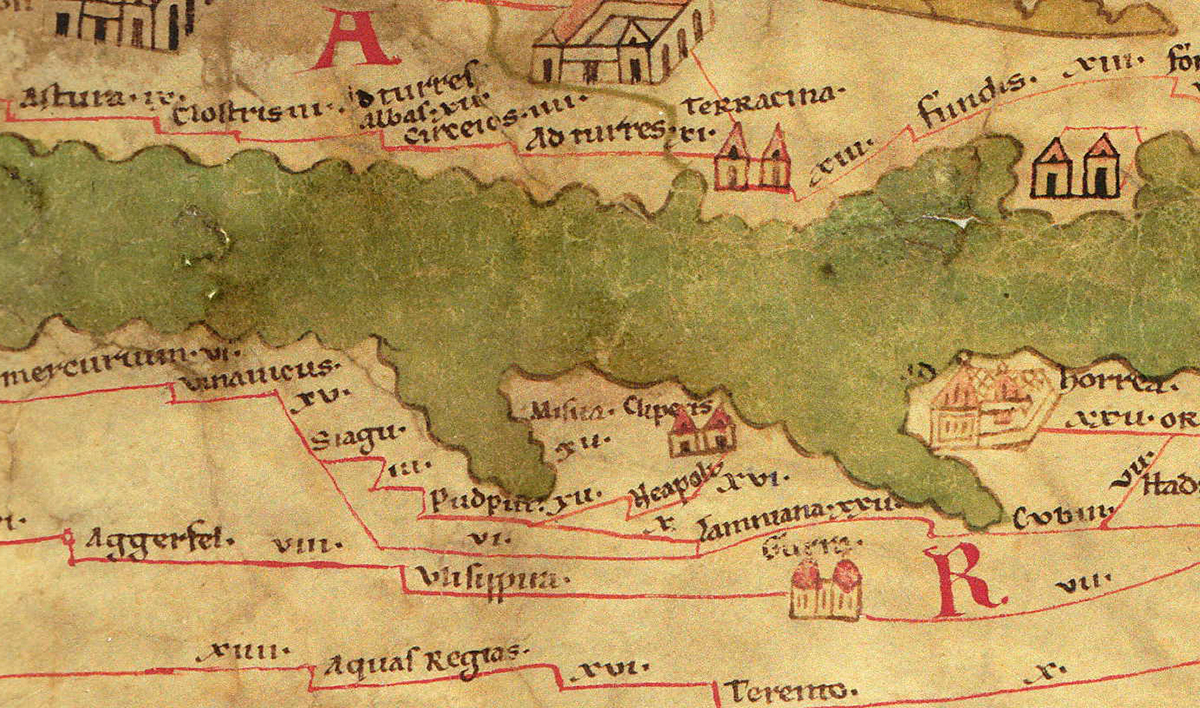 A
Astura·ix·
Clostris·iii·
ad turres
albas·xii·
Circeios·iiii·
Ad turres·xi·
Terracina·
xiii·
fundis·
xiii·
for
mercurium·vi·
vinauicus·
xv·
Siagu·
iii·
Pudput·xii·
Misua·Clipeis
xii·
Neapoli
xvi·
x
vi·
xxvii·
ad
horrea·
xxv·
OR
vii·
Had
Aggerfel·
viii·
Vlisippira·
R
vii·
xiiii·
Aquas Regias·
xvi·
Terento·
x·